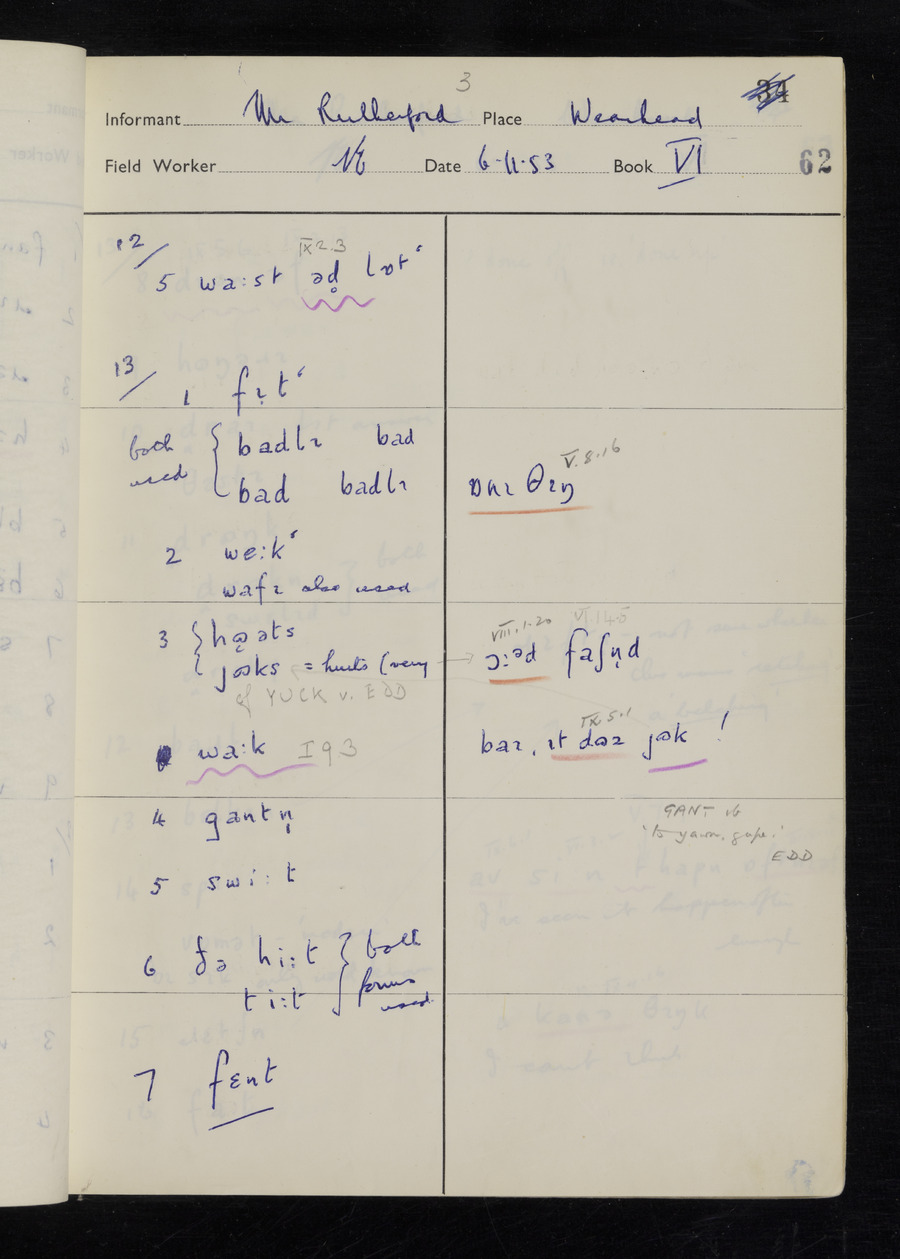 3
34
Informant Mr Rutherford Place Wearhead
Field Worker NE Date 6-11-53 Book VI
62
12/
IX 2.3
5 wa:st əd̥ lɒt‘
13/
1 fɪ̣t‘
both used { badlɪ bad
bad badlɪ
V.8.16
θɪŋ
2 we:k‘
wafɪ also used
3 { hɵəts
jɵks = hurts (very →
cf YUCK v. EDD
VIII.1.20 VI.14.5
ɔ:ᵊd faʃn̩d
wa:k I 9 3
IX.5.1
baɪ, ɪt dɵz jɵk !
4 gantn̩
GANT vb
'to yawn, gape.'
EDD
5 swi:t
6 ðə hi:t } both
t i:t forms
used
7 fɛnt